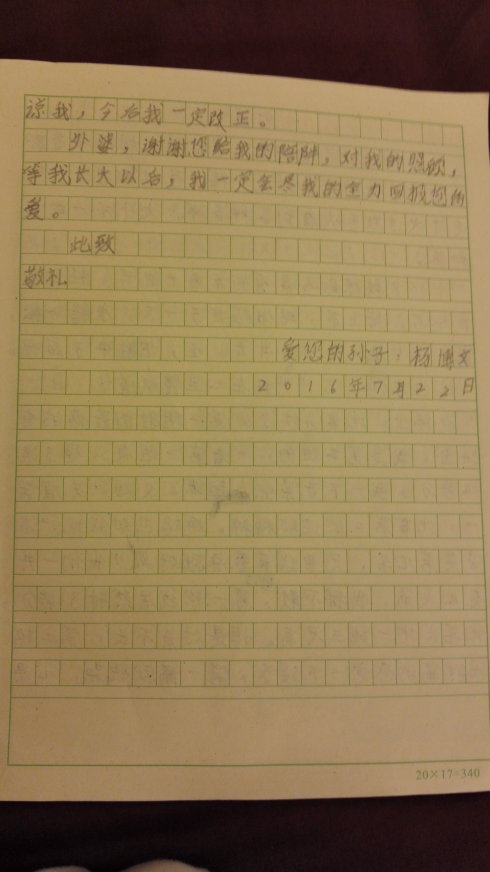 谅我，今后我一定改正。
外婆，谢谢您给我的陪伴，对我的照顾，
等我长大以后，我一定会尽我的全力回报您的
爱。
此致
敬礼
爱您的孙子：杨博文
2016年7月22日
20×17=340